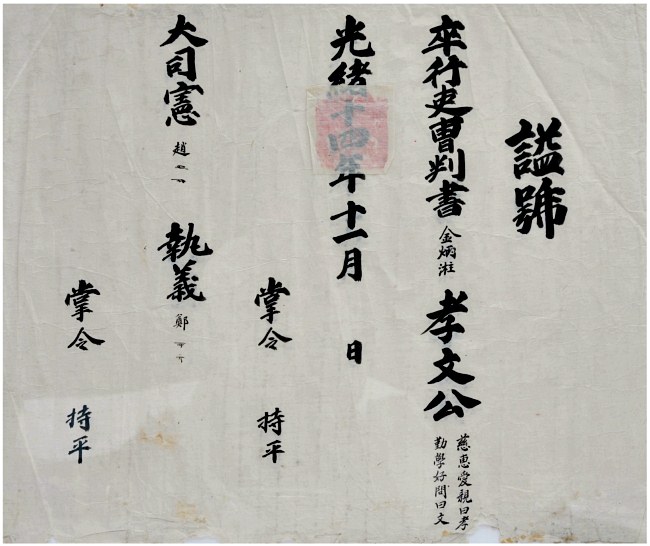 諡號
卒行吏曹判書 金炳㴤 孝文公 慈惠愛親曰孝
勤學好問曰文
光緖十四年十一月 日
掌令 持平
大司憲 趙 執義 鄭
掌令 持平